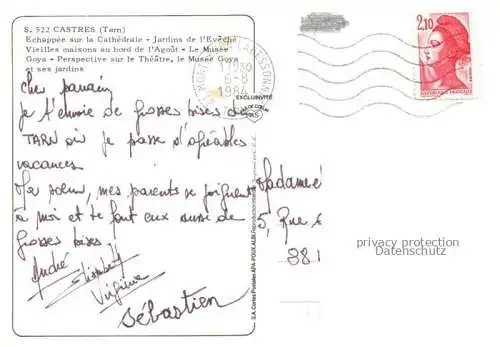 S. 522 CASTRES (Tarn)
Echappée sur la Cathédrale - Jardins de l'Evêché
Vieilles maisons au bord de l'Agoût - Le Musée
Goya - Perspective sur le Théâtre, le Musée Goya
et ses jardins
1984
2,10
cher parrain
je t'envoie de grosses bises du
TARN où je passe d'agréables
vacances
Ma soeur, mes parents se joignent
à moi et te font eux aussi de
grosses bises
André
Elisabeth
Virginie
Sébastien
Madame
5, Rue
381
privacy protection
Datenschutz
S.A. Cartes Postales APA-POUX ALBI